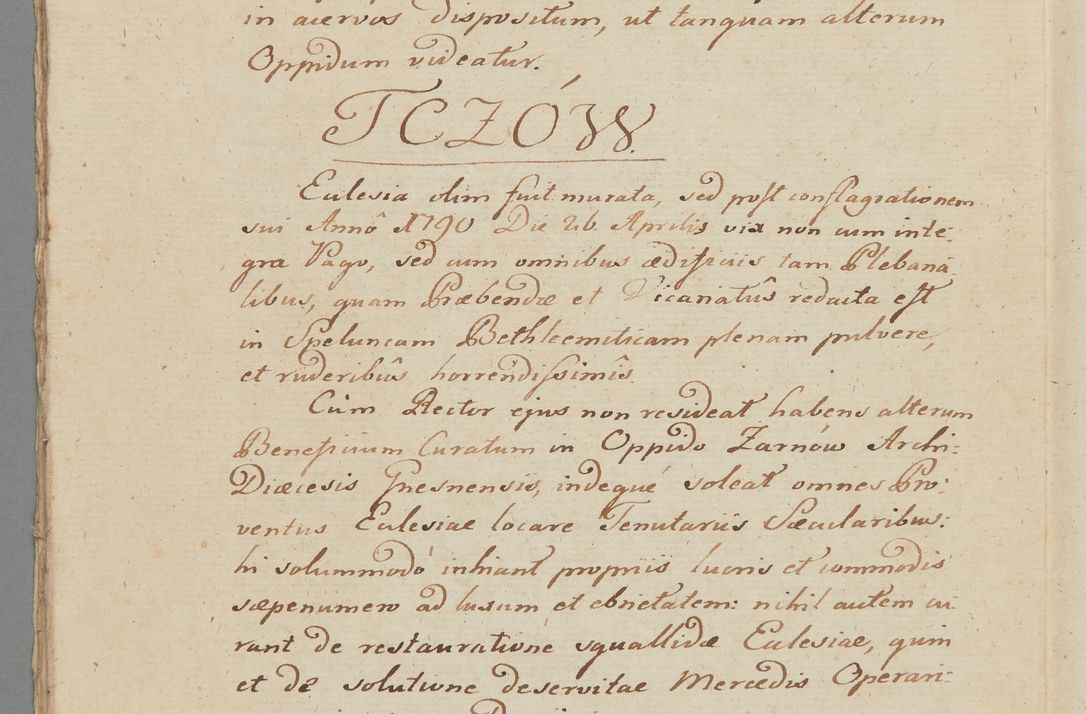 in acervos dispositum, ut tanquam alterum
Oppidum videatur.
TCZÓW.
Ecclesia olim fuit murata, sed post conflagrationem
sui Annô 1790 Die 26 Aprilis vix non cum inte-
gra Pago, sed cum omnibus ædificiis tam Plebana-
libus, quam Præbendæ et Vicariatûs redacta est
in Speluncam Bethleemiticam plenam pulvere,
et ruderibûs horrendissimîs.
Cùm Rector ejus non resideat habens alterum
Beneficium Curatum in Oppido Zarnów Archi-
Diæcesis Gnesnensis, indequé soleat omnes Pro-
ventus Ecclesiae locare Tenutariis Sæcularibus:
hi solummodó inhiant propriis lucris et commodis
sæpenumero ad lusum et ebrietatem: nihil autem cu-
rant de restauratione squallidæ Ecclesiae, quin
et de solutione deservitae Mercedis Operari-